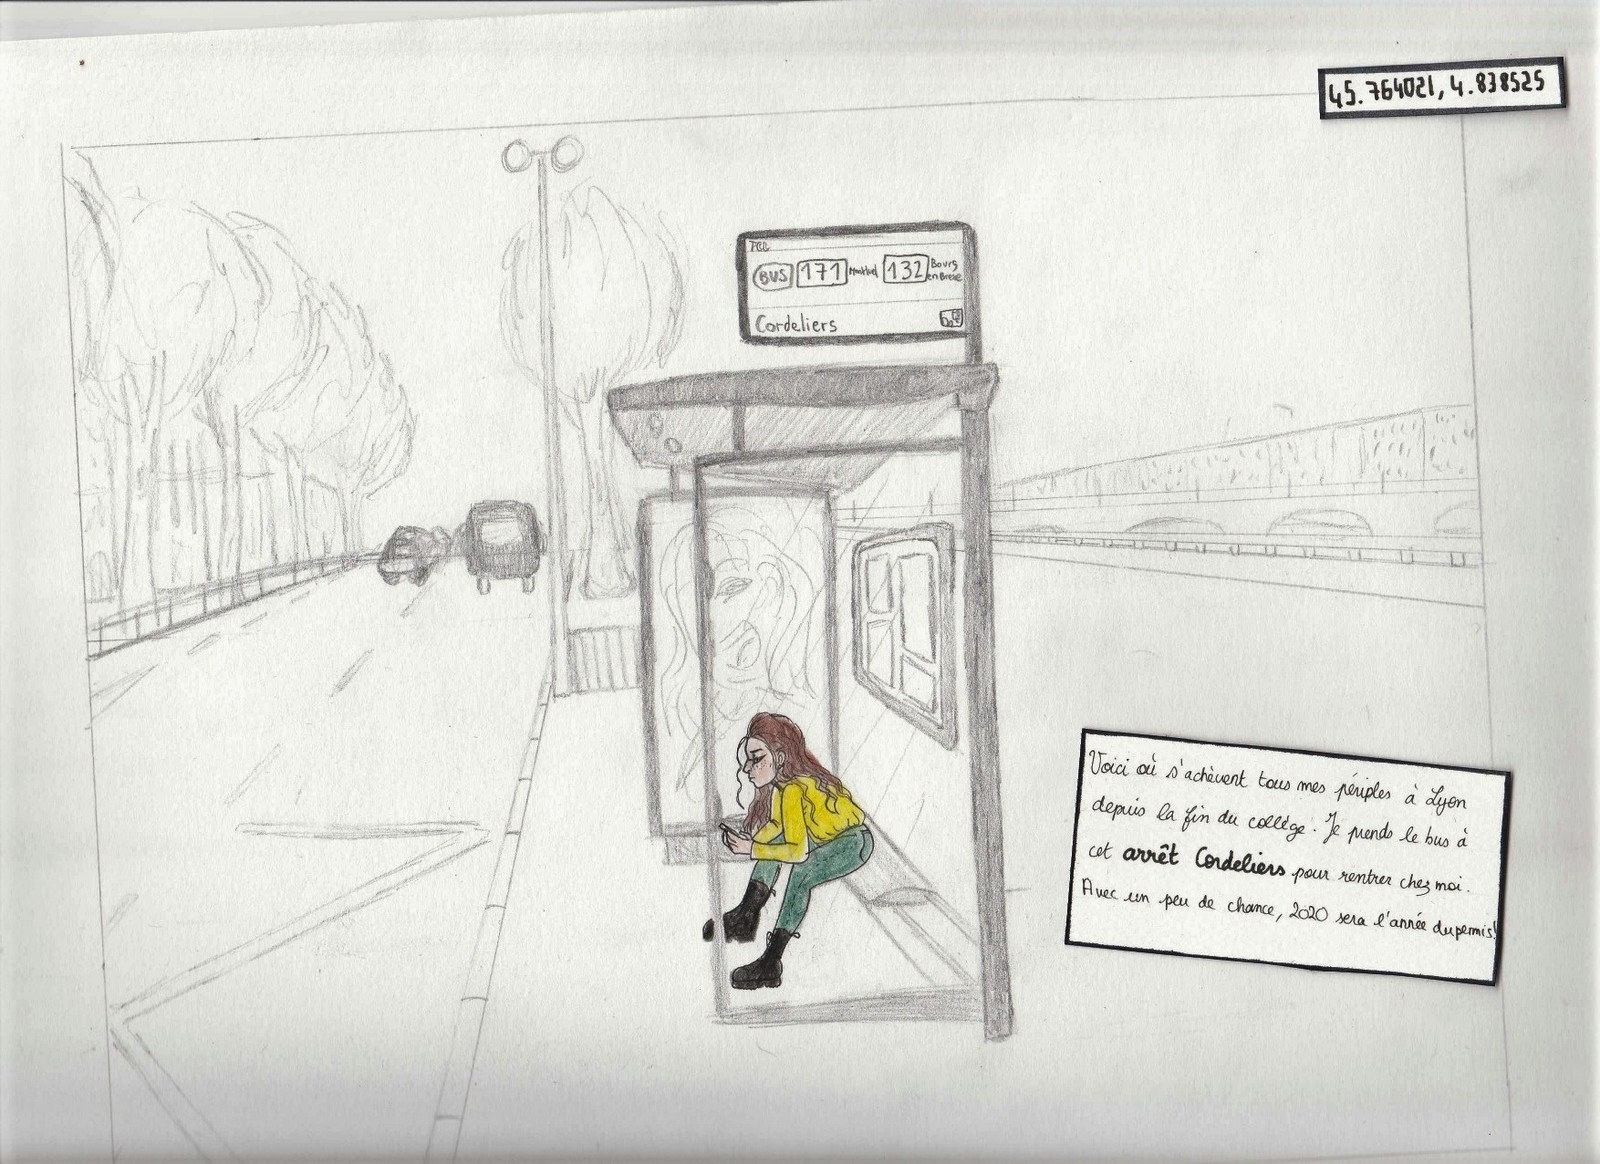 45.764021, 4.838525
TCL
BUS 171 Montluel 132 Bourg en Bresse
Cordeliers
Voici où s'achèvent tous mes périples à Lyon
depuis la fin du collège. Je prends le bus à
cet arrêt Cordeliers pour rentrer chez moi.
Avec un peu de chance, 2020 sera l'année du permis!